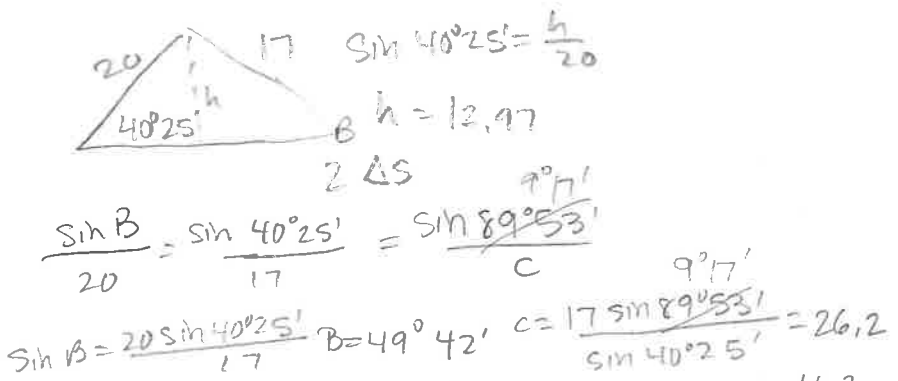 20 17 sin 40°25' = h/20
h
40°25' B h = 12.97
2 Δs
9°17'
sin B/20 = sin 40°25'/17 = sin 89°53'/c
9°17'
sin B = 20 sin 40°25'/17 B = 49°42' c = 17 sin 89°53'/sin 40°25' = 26.2